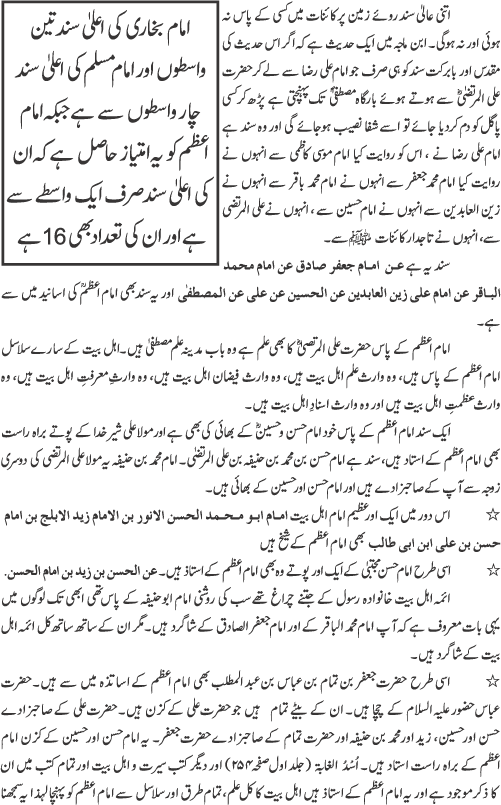 امام بخاری کی اعلیٰ سند تین
واسطوں اور امام مسلم کی اعلیٰ سند
چار واسطوں سے ہے جبکہ امام
اعظم کو یہ امتیاز حاصل ہے کہ ان
کی اعلیٰ سند صرف ایک واسطے سے
ہے اور ان کی تعداد بھی 16 ہے
اتنی عالی سند روئے زمین پر کائنات میں کسی کے پاس نہ
ہوئی اور نہ ہوگی۔ ابن ماجہ میں ایک حدیث ہے کہ اگر اس حدیث کی
مقدس اور بابرکت سند کو ہی صرف جو امام علی رضا سے لے کر حضرت
علی المرتضیٰؓ سے ہوتے ہوئے بارگاہ مصطفیٰؐ تک پہنچتی ہے پڑھ کر کسی
پاگل کو دم کردیا جائے تو اسے شفا نصیب ہوجائے گی اور وہ سند ہے
امام علی رضا نے، اس کو روایت کیا امام موسی کاظمی سے انہوں نے
روایت کیا امام محمد جعفر سے انہوں نے امام محمد باقر سے انہوں نے
زین العابدین سے انہوں نے امام حسین سے، انہوں نے علی المرتضی
سے، انہوں نے تاجدار کائنات ﷺ سے۔
سند یہ ہے عن امام جعفر صادق عن امام محمد
الباقر عن امام علی زین العابدین عن الحسین عن علی عن المصطفٰی اور یہ سند بھی امام اعظمؒ کی اسانید میں سے
ہے۔
امام اعظم کے پاس حضرت علی المرتضیٰؓ کا بھی علم ہے وہ باب مدینہ علم مصطفیٰؐ ہیں۔ اہل بیت کے سارے سلاسل
امام اعظم کے پاس ہیں، وہ وارث علم اہل بیت ہیں، وہ وارث فیضان اہل بیت ہیں، وہ وارثِ معرفتِ اہل بیت ہیں، وہ
وارث عظمتِ اہل بیت ہیں اور وہ وارث اسنادِ اہل بیت ہیں۔
ایک سند امام اعظم کے پاس خود امام حسن و حسینؓ کے بھائی کی بھی ہے اور مولا علی شیر خدا کے پوتے براہ راست
بھی امام اعظم کے استاد ہیں، سند ہے امام حسن بن محمد بن حنیفہ بن علی المرتضیٰ۔ امام محمد بن حنیفہ یہ مولا علی المرتضی کی دوسری
زوجہ سے آپ کے صاحبزادے ہیں اور امام حسن اور حسین کے بھائی ہیں۔
☆ اس دور میں ایک اور عظیم امام اہل بیت امام ابو محمد الحسن الانور بن الامام زید الابلج بن امام
حسن بن علی ابن ابی طالب بھی امام اعظم کے شیخ ہیں
☆ اسی طرح امام حسن مجتبیٰؓ کے ایک اور پوتے وہ بھی امام اعظم کے استاد ہیں۔ عن الحسن بن زید بن امام الحسن.
ائمہ اہل بیت خانوادہ رسول کے جتنے چراغ تھے سب کی روشنی امام ابو حنیفہ کے پاس تھی ابھی تک لوگوں میں
یہی بات معروف ہے کہ آپ امام محمد الباقر کے اور امام جعفر الصادق کے شاگرد ہیں۔ مگر ان کے ساتھ ساتھ کل ائمہ اہل
بیت کے شاگرد ہیں۔
☆ اسی طرح حضرت جعفر بن تمام بن عباس بن عبدالمطلب بھی امام اعظم کے اساتذہ میں سے ہیں۔ حضرت
عباس حضور علیہ السلام کے چچا ہیں۔ ان کے بیٹے تمام ہیں جو حضرت علی کے کزن ہیں۔ حضرت علی کے صاحبزادے
حسن اور حسین، زید اور محمد بن حنیفہ اور حضرت تمام کے صاحبزادے حضرت جعفر۔ یہ امام حسن اور حسین کے کزن امام
اعظم کے براہ راست استاد ہیں۔ اُسُدُ الغابۃ (جلد اول صفحہ ۲۵۴) اور دیگر کتب سیرت و اہل بیت اور تمام کتب میں ان
کا ذکر موجود ہے اور یہ امام اعظم کے استاد ہیں اہل بیت کا کل علم، تمام طرق اور سلاسل سے امام اعظم کو پہنچا لہذا یہ سمجھنا